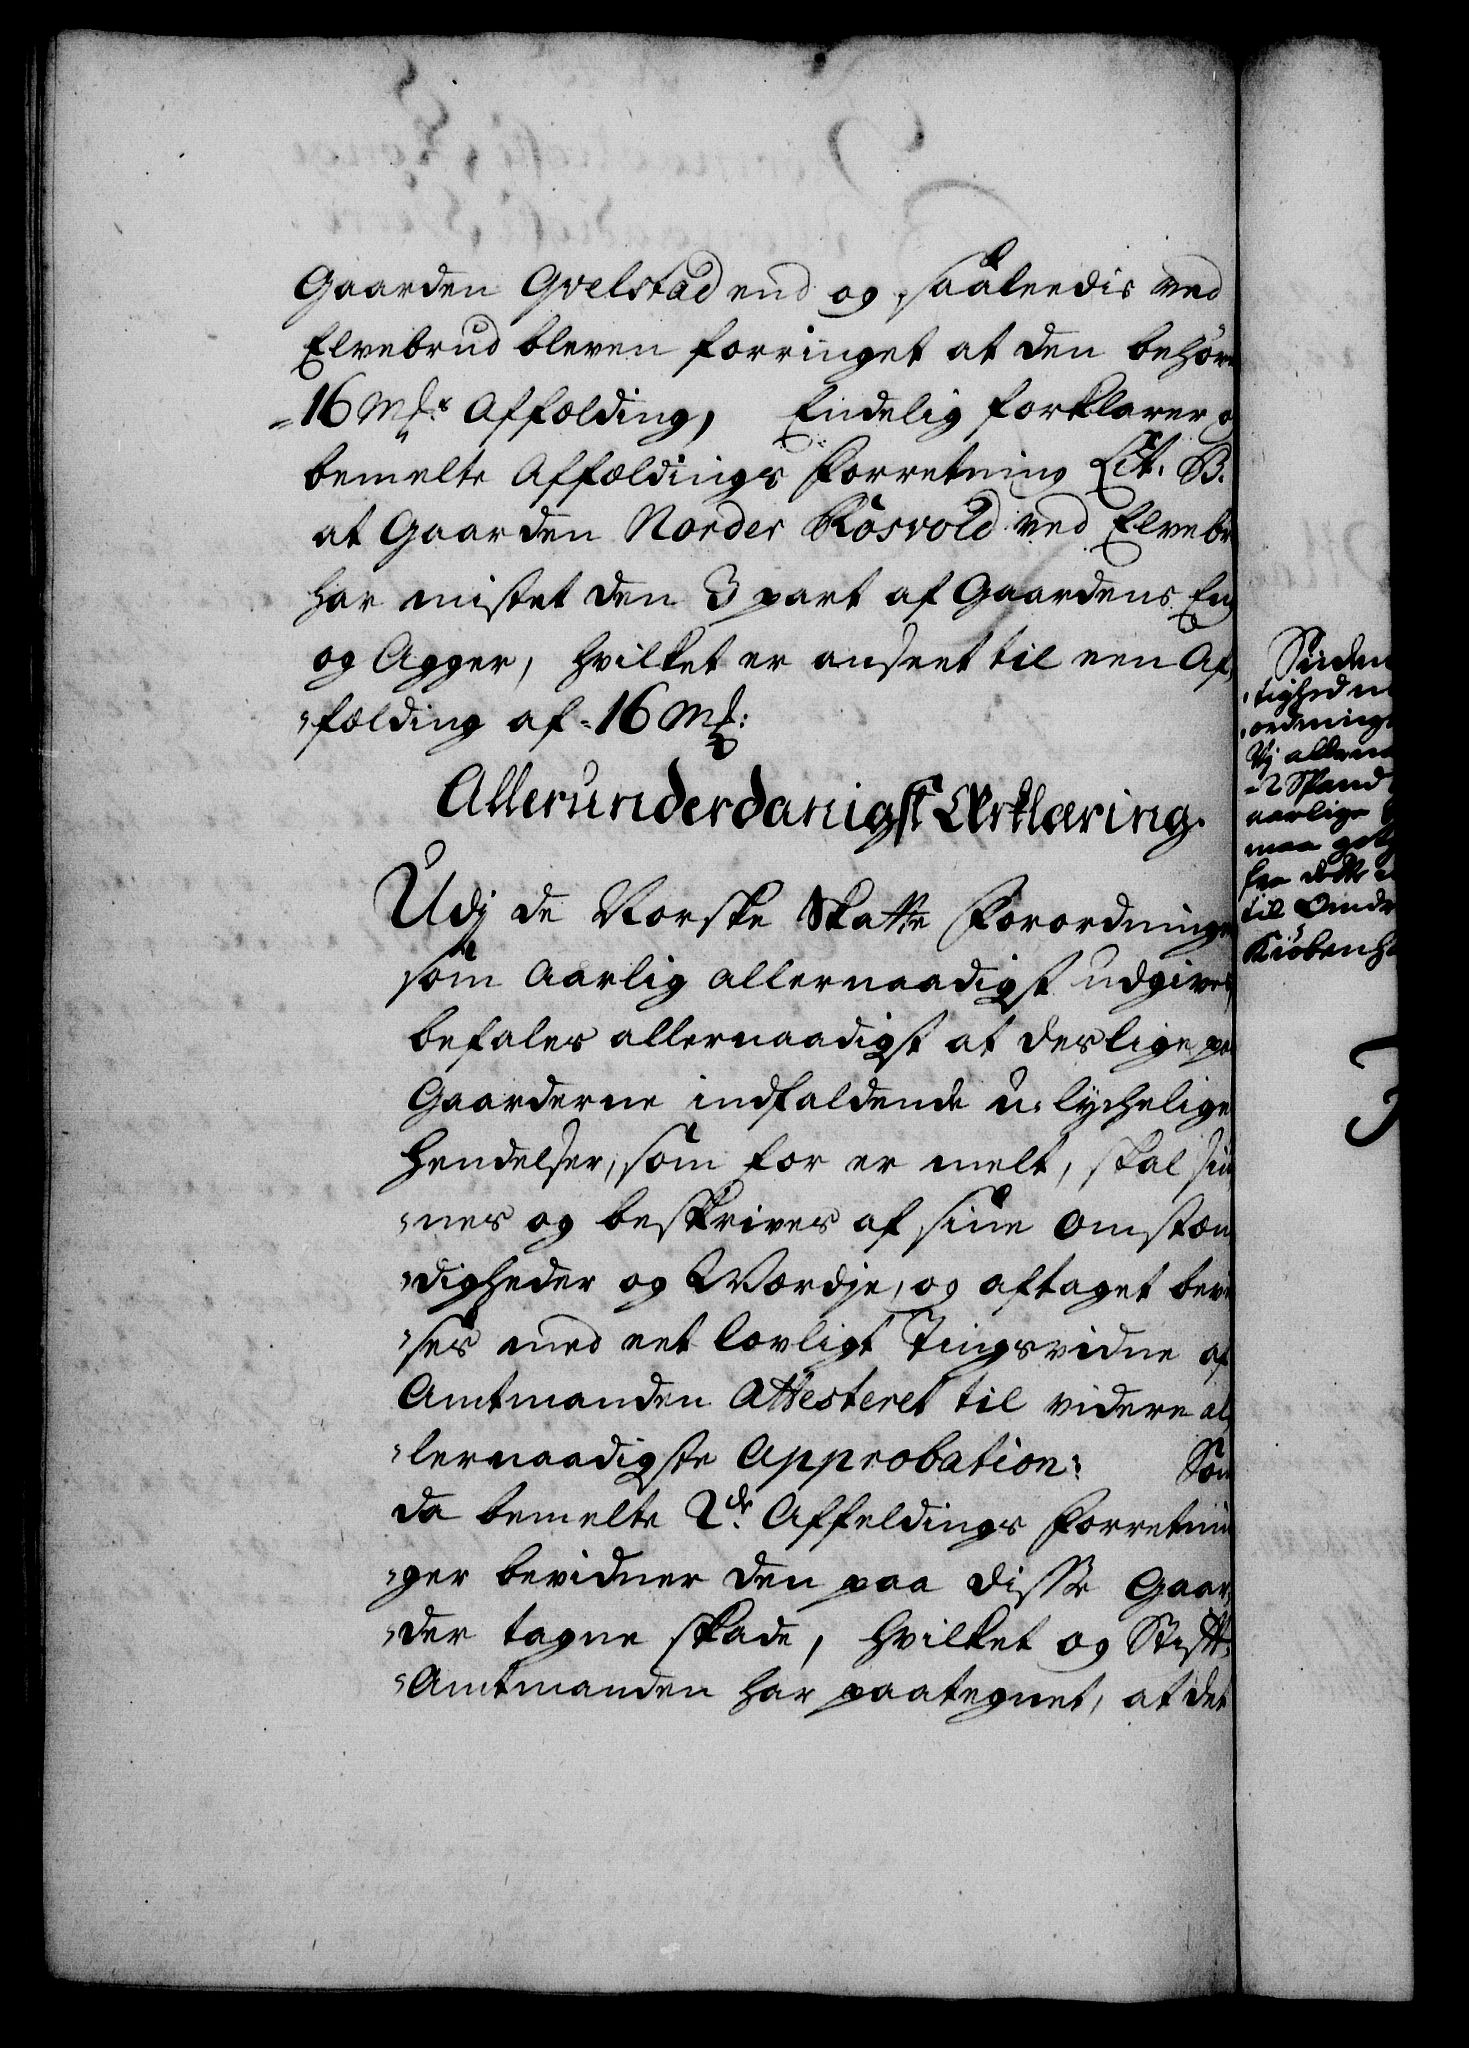 Gaarden Qvelstad end og saaleedis ved
Elvebrud bleven forringet at den behöve
16 Mk Affælding, Endelig forklarer
bemelte Affældings Forretning Lit. B.
at Gaarden Norder Rosvold ved Elvebr
har mistet den 3 part af Gaardens Eng
og Agger, hvilket er anseet til een Af
fælding af 16 Mk:
Allerunderdanigst Erklæring.
Udj de Norske Skatte Forordninge
som Aarlig allernaadigst udgives,
befales allernaadigst at deslige paa
Gaarderne indfaldende u-lychelige
Hendelser, som for er melt, skal siu
nes og beskrives af sine Omstæn
digheder og Værdje, og aftaget bevi
ses med eet lovligt Tingsvidne af
Amtmanden Attesteret til videre al
lernaadigste Approbation: Som
da bemelte 2de Affeldings Forretnin
ger bevidner den paa disse Gaar
der tagne skade, hvilket og Stift
Amtmanden har paategnet, at det
Siden
tighed
ordning
Vj allern
2 Spand
aarlige
maa
fra dette
til
Kiöbenh